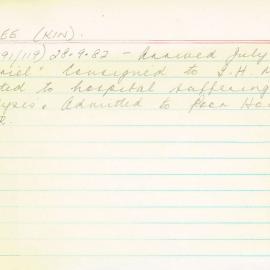 EE (KIN).
91/119) 28.9.82 – Arrived July
riel" Consigned to J.H.
ted to hospital suffering
lyses. Admitted to Poor Ho